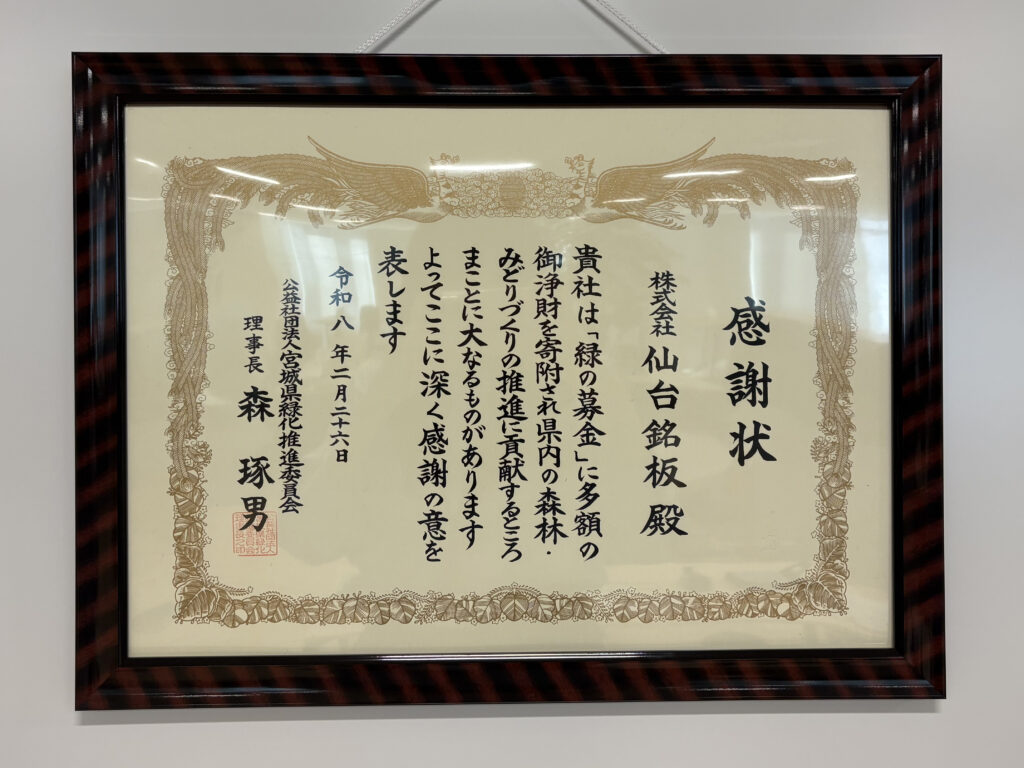 感謝状
株式会社 仙台銘板 殿
貴社は「緑の募金」に多額の
御浄財を寄附され県内の森林・
みどりづくりの推進に貢献するところ
まことに大なるものがあります
よってここに深く感謝の意を
表します
令和八年二月二十六日
公益社団法人宮城県緑化推進委員会
理事長 森 琢男